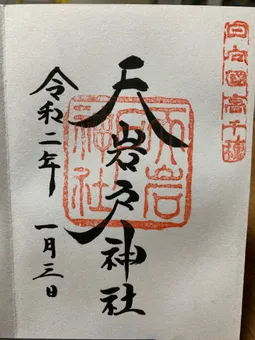 日向國高千穗
天岩戸神社
天岩戸神社
令和二年
一月三日